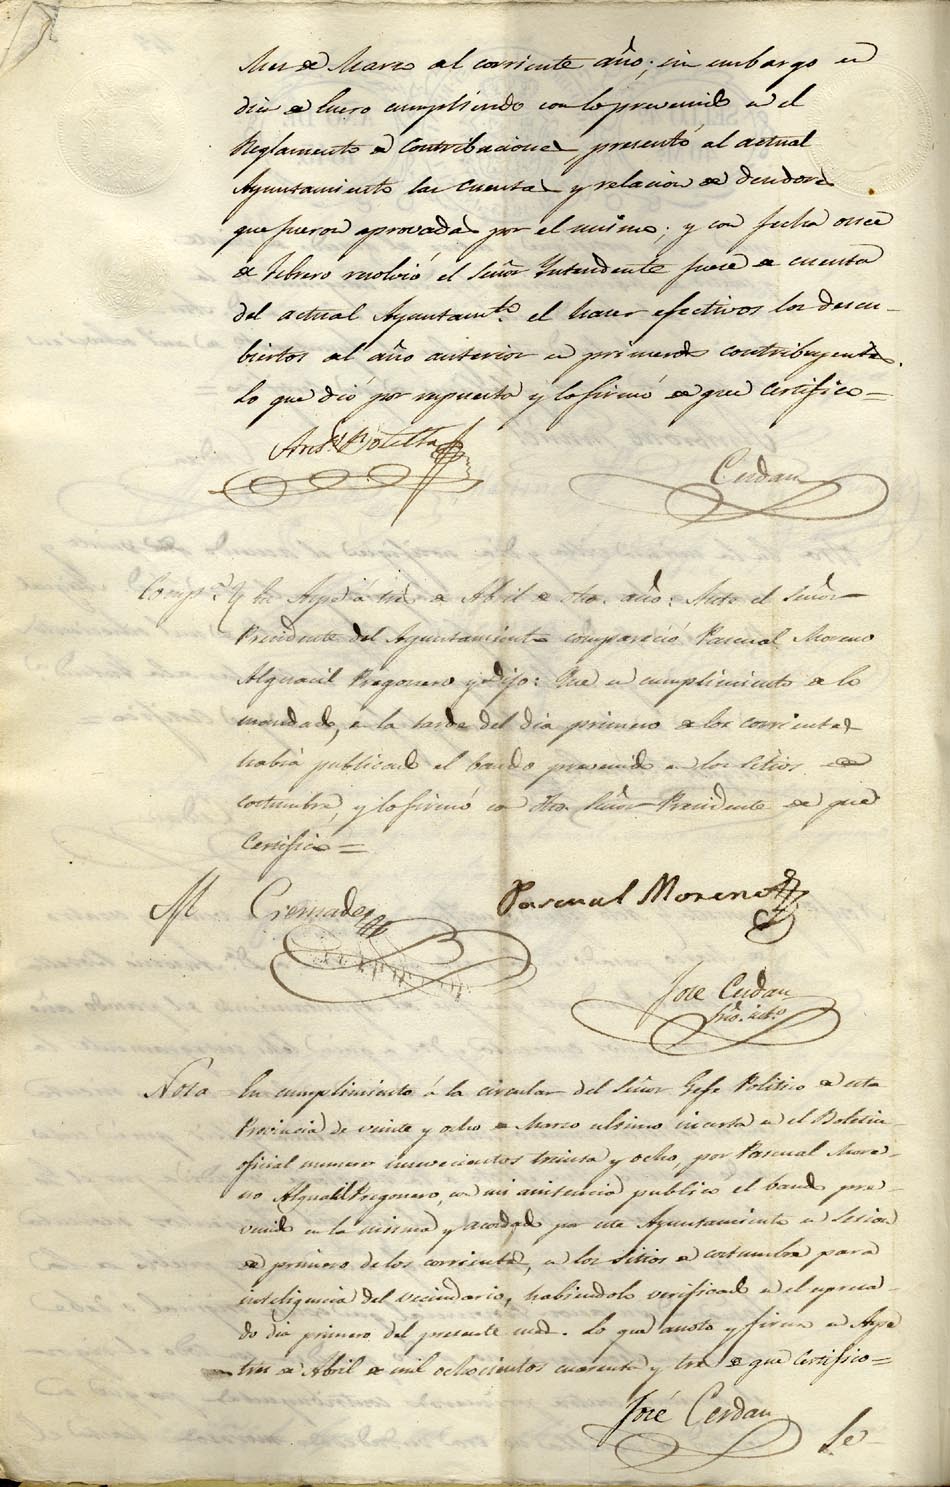 Mes de Marzo del corriente año; sin embargo en
dia de Enero cumpliendo con lo prevenido en el
Reglamento de Contribuciones, presentó al actual
Ayuntamiento las cuentas y relacion de deudores
que fueron aprovadas por el mismo; y con fecha once
de Febrero resolvió el Señor Intendente fuese de cuenta
del actual Ayuntamto. el hacer efectivos los descu-
biertos del año anterior en primeros contribuyentes.
Lo que dió por respuesta y lo firmó de que Certifico=
Anto. Botella
Cerdan
Comp.ª En Aspe á tres de Abril de dho. año: Ante el Señor
Presidente del Ayuntamiento compareció Pascual Moreno
Alguacil Pregonero y Dijo: Que en cumplimiento de lo
mandado, en la tarde del dia primero de los corrientes
habia publicado el bando prevenido en los sitios de
costumbre, y lo firmó con dho. Señor Presidente de que
Certifico=
M. Cremades
Pascual Moreno
Jose Cerdan
Srio. int.º
Nota En cumplimiento á la circular del Señor Gefe Politico de esta
Provincia de veinte y ocho de Marzo ultimo incerta en el Boletin
oficial numero nuevecientos treinta y ocho, por Pascual More-
no Alguacil Pregonero, con mi asistencia publicó el bando pre-
venido en la misma y acordado por este Ayuntamiento en Sesion
de primero de los corrientes, en los sitios de costumbre para
inteligencia del vecindario, habiendolo verificado en el espresa-
do dia primero del presente mes. Lo que anoto y firmo en Aspe
tres de Abril de mil ochocientos cuarenta y tres de que Certifico=
José Cerdan
Se